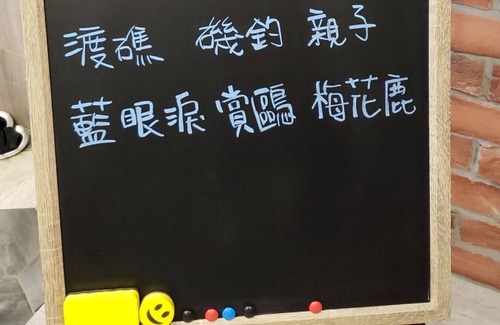 渡礁 磯釣 親子
藍眼淚 賞鷗 梅花鹿